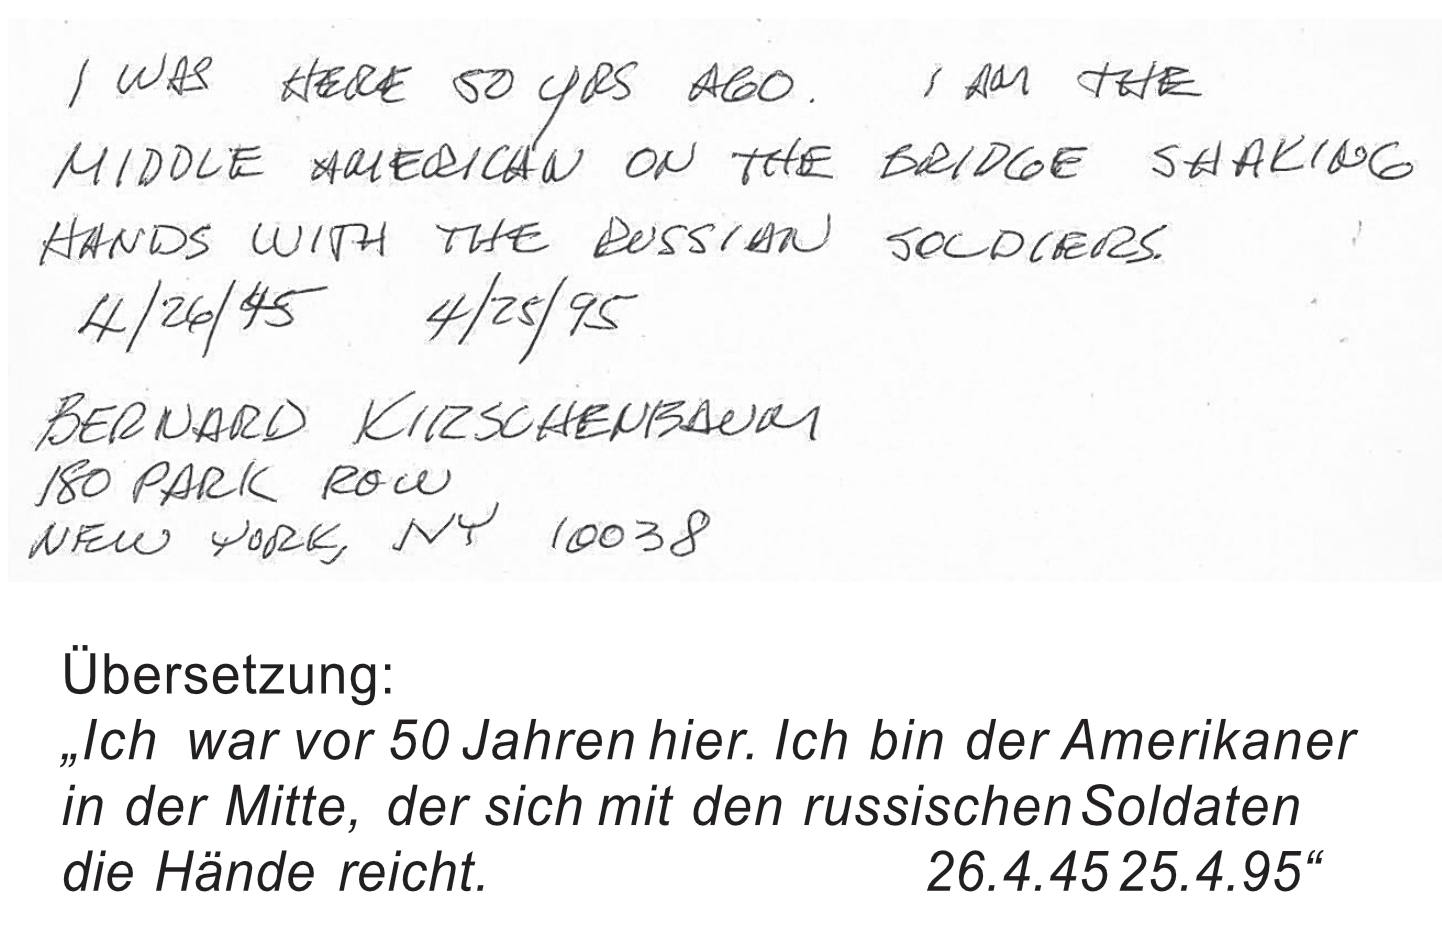 I WAS HERE 50 YRS AGO. I AM THE
MIDDLE AMERICAN ON THE BRIDGE SHAKING
HANDS WITH THE RUSSIAN SOLDIERS.
4/26/45 4/25/95
BERNARD KIRSCHENBAUM
180 PARK ROW
NEW YORK, NY 10038
Übersetzung:
„Ich war vor 50 Jahren hier. Ich bin der Amerikaner
in der Mitte, der sich mit den russischen Soldaten
die Hände reicht. 26.4.45 25.4.95“